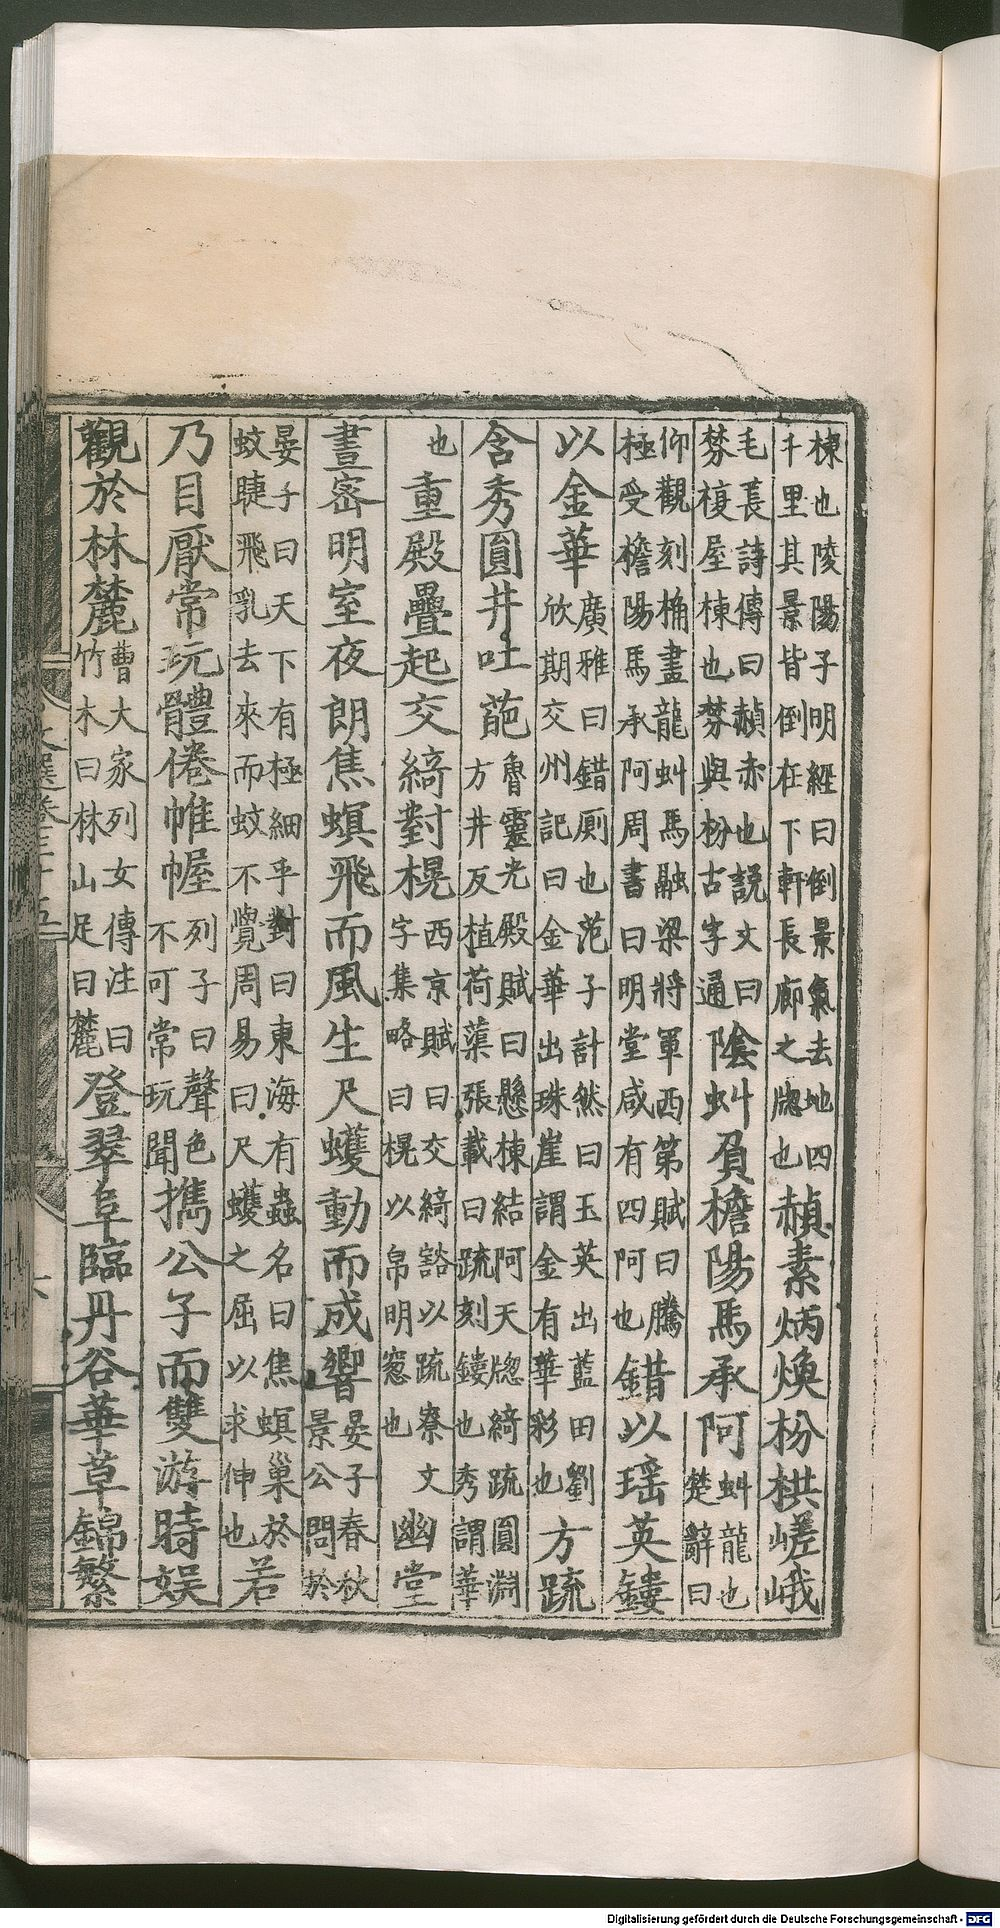 棟也陵陽子明經曰倒景氣去地四
千里其景皆倒在下軒長廊之牕也
赬素炳煥枌栱嵯峨
毛萇詩傳曰赬赤也説文曰
棼複屋棟也棼與枌古字通
陰虯負檐陽馬承阿
虯龍也
楚辭曰
仰觀刻桷畫龍虯馬融梁將軍西第賦曰騰
極受檐陽馬承阿周書曰明堂咸有四阿也
錯以瑶英鏤
以金華
廣雅曰錯厠也范子計然曰玉英出藍田劉
欣期交州記曰金華出珠崖謂金有華彩也
方疏
含秀圓井吐葩
魯靈光殿賦曰懸棟結阿天牕綺疏圓淵
方井反植荷蕖張載曰疏刻鏤也秀謂華
也
重殿疊起交綺對榥
西京賦曰交綺豁以疏寮文
字集略曰榥以帛明窻也
幽堂
晝密明室夜朗焦螟飛而風生尺蠖動而成響
晏子春秋
景公問於
晏子曰天下有極細乎對曰東海有蟲名曰焦螟巢於
蚊睫飛乳去來而蚊不覺周易曰尺蠖之屈以求伸也
若
乃目厭常玩體倦帷幄
列子曰聲色
不可常玩聞
攜公子而雙游時娱
觀於林麓
曹大家列女傳注曰
竹木曰林山足曰麓
登翠阜臨丹谷華草錦繁
文選卷三十五
Digitalisierung gefördert durch die Deutsche Forschungsgemeinschaft - DFG